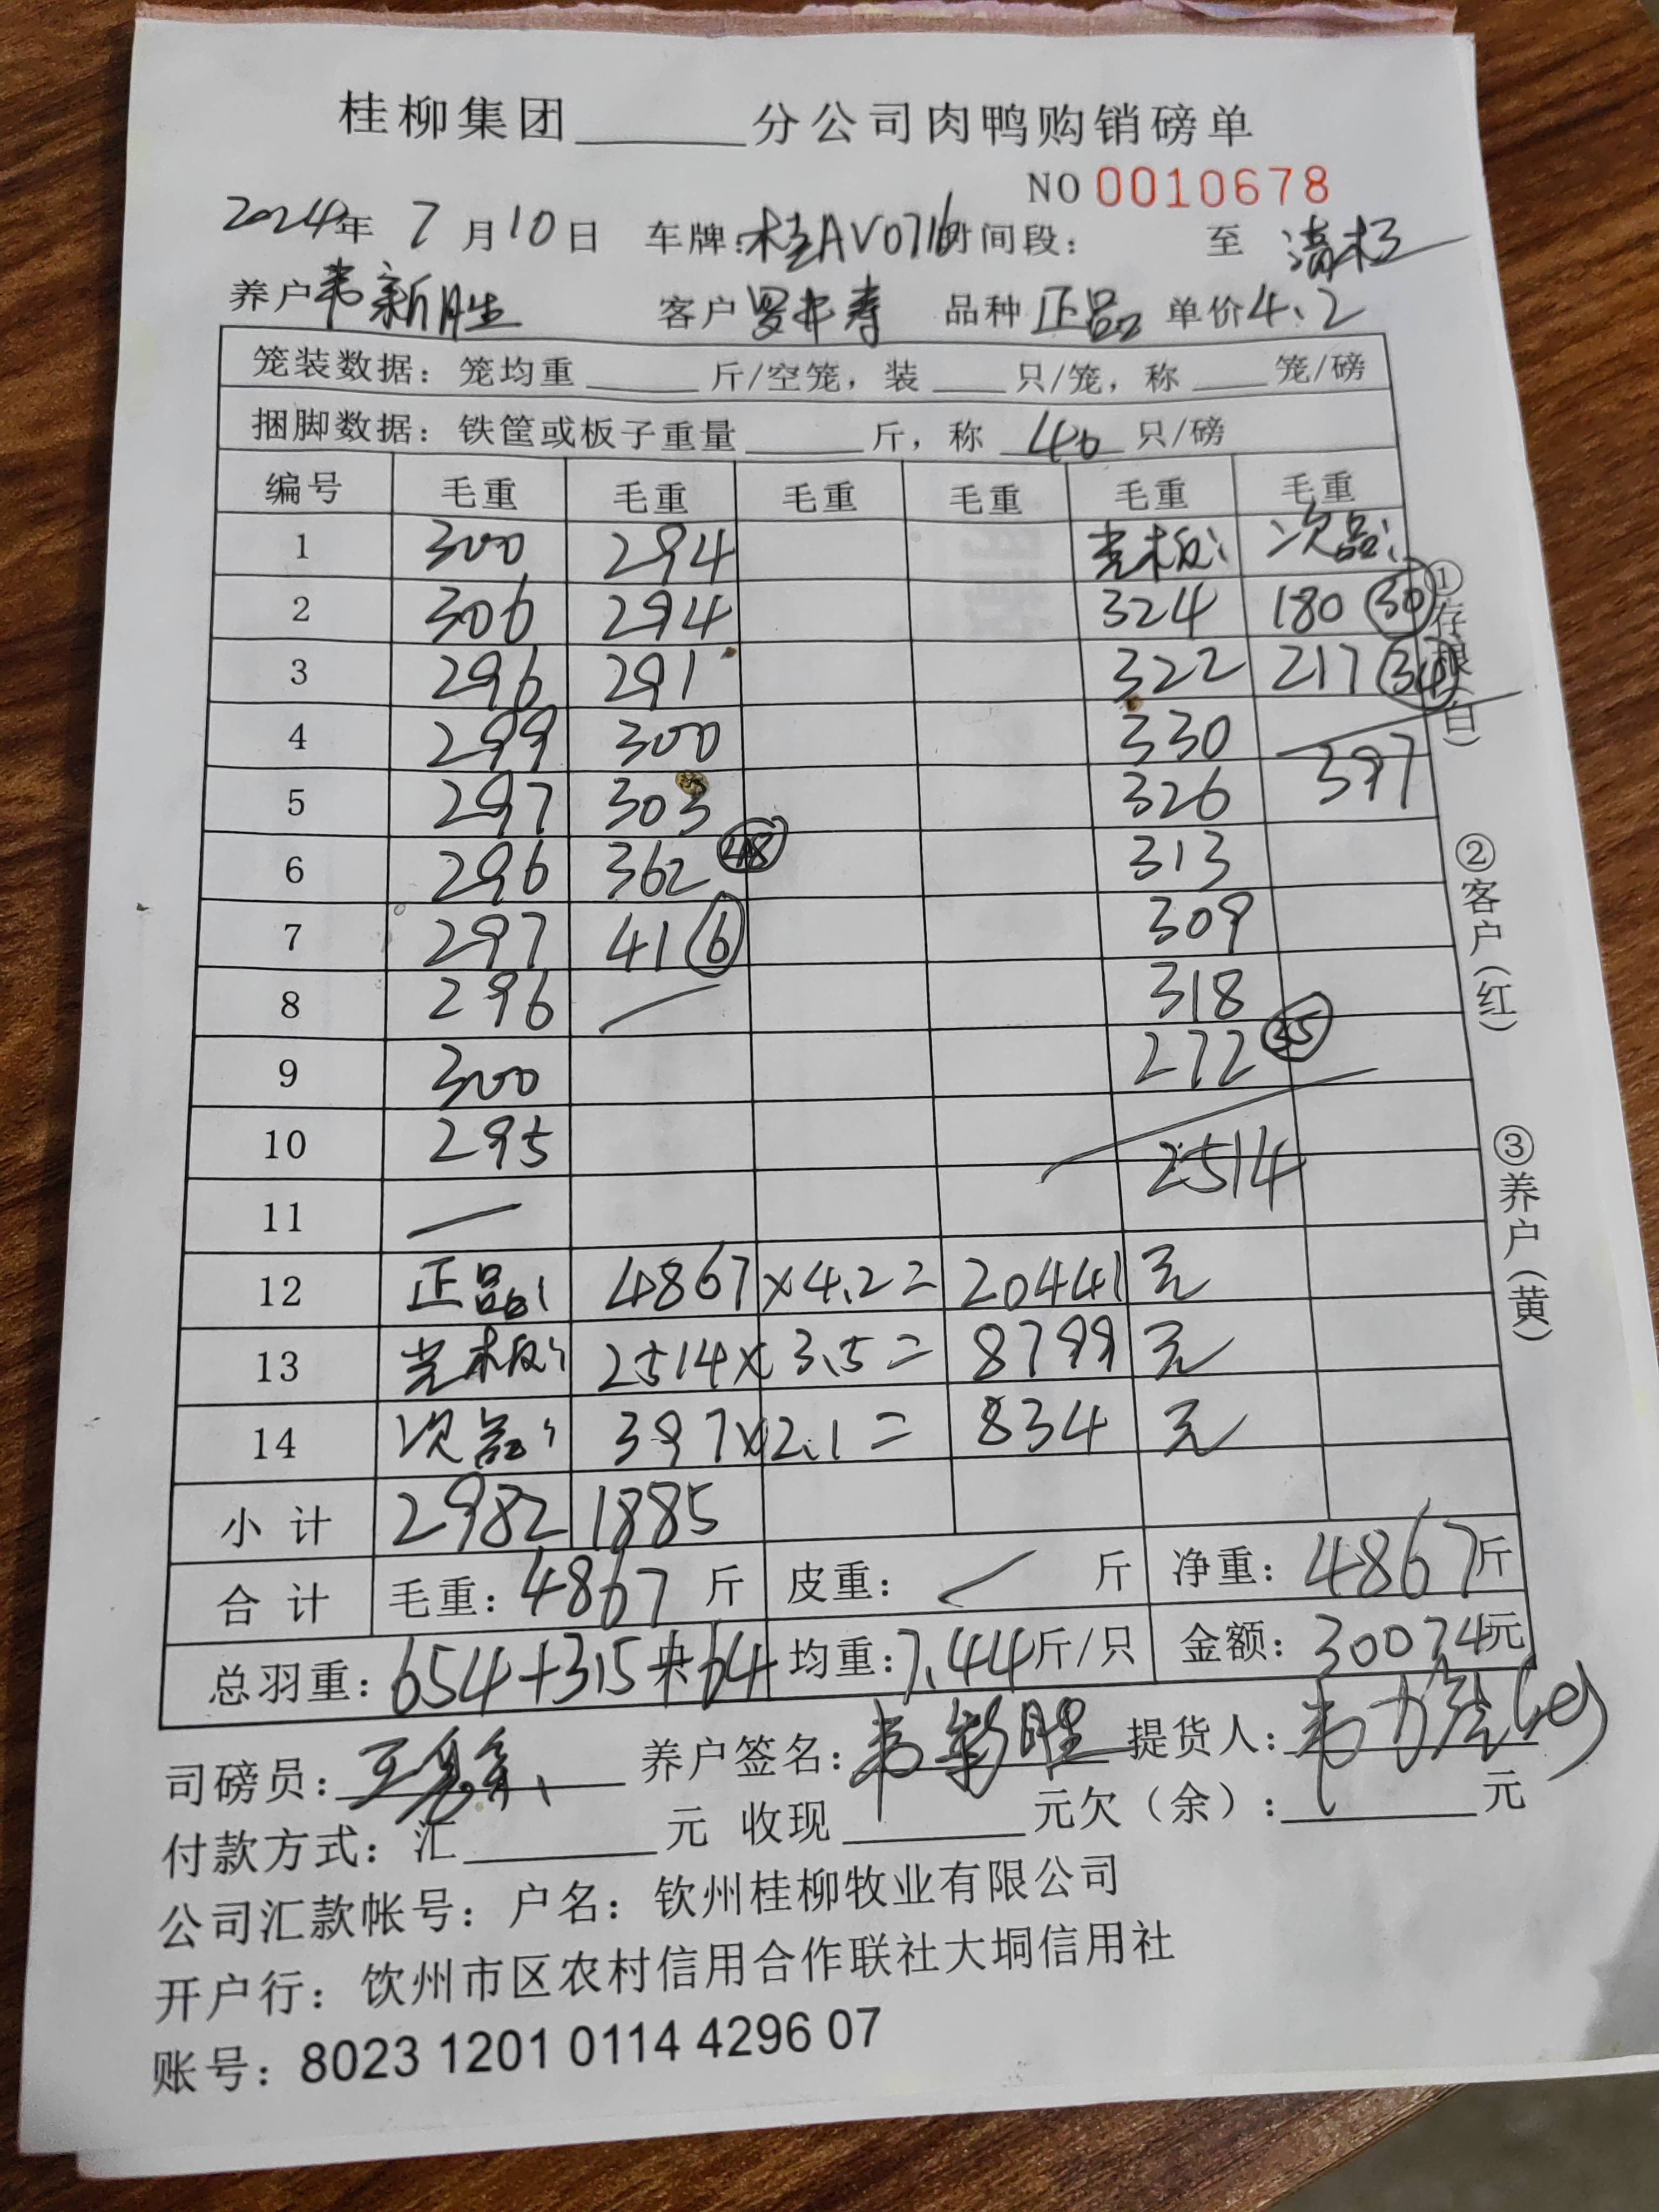 桂柳集团______分公司肉鸭购销磅单
NO 0010678
2024年 7 月10日 车牌:桂AV0716时间段: 至 清
养户韦新胜 客户 罗 寿 品种 正品 单价4.2
笼装数据: 笼均重______斤/空笼, 装____只/笼, 称____笼/磅
捆脚数据: 铁筐或板子重量______斤, 称 40 只/磅
编号 毛重 毛重 毛重 毛重 毛重 毛重
1 300 294 光板: 次品:
2 306 294 324 180 30
3 296 291 322 217 34
4 299 300 330
5 297 303 326 397
6 296 362 48 313
7 297 41 6 309
8 296 / 318
9 300 272 35
10 295 2514
11 —
12 正品: 4867 ×4.2= 20441 元
13 光板: 2514 × 3.5= 8799 元
14 次品: 397 ×2.1= 834 元
小 计 2982 1885
合 计 毛重: 4867 斤 皮重: / 斤 净重: 4867斤
总羽重: 654+315 共64 均重:7.44斤/只 金额: 30074元
司磅员: 养户签名: 韦新胜 提货人: 韦
付款方式: 汇______元 收现______元欠（余）:______元
公司汇款帐号: 户名: 钦州桂柳牧业有限公司
开户行: 钦州市区农村信用合作联社大垌信用社
账号: 8023 1201 0114 4296 07
①存根(白)
②客户(红)
③养户(黄)